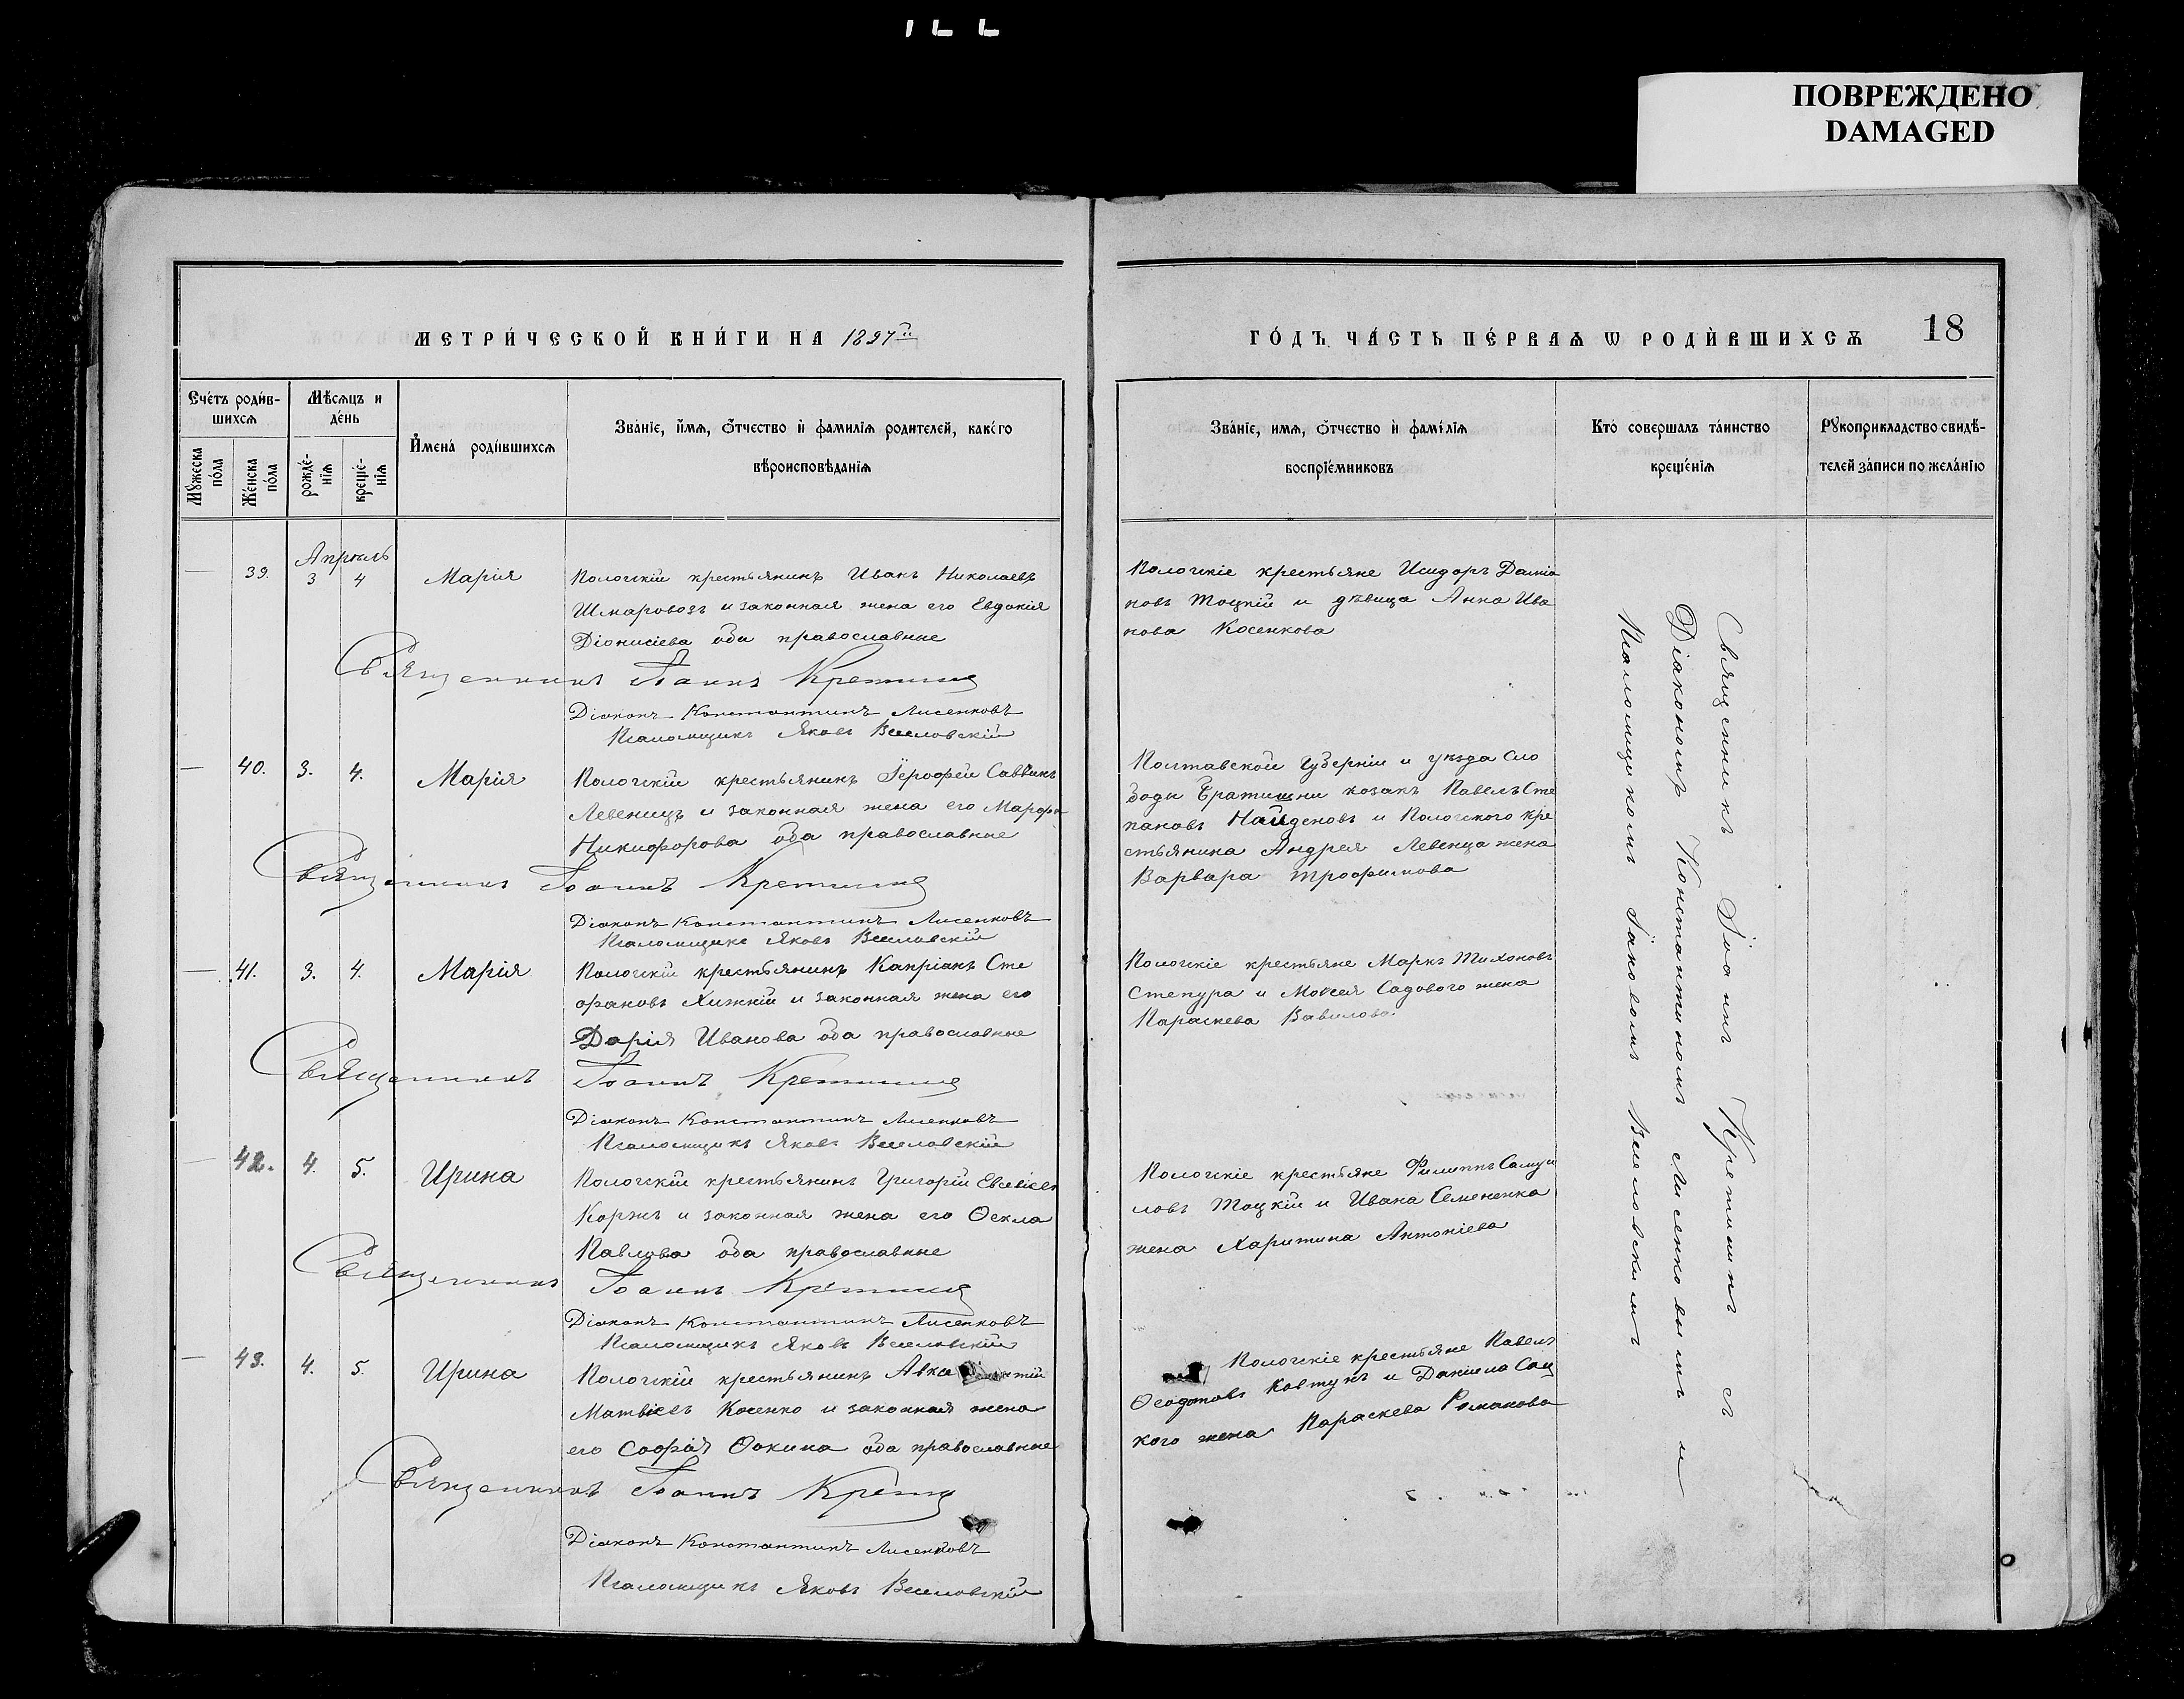 ПОВРЕЖДЕНО
DAMAGED
МЕТРИ́ЧЕСКОЙ КНИ́ГИ НА 1897й
ГО́ДЪ ЧА́СТЬ ПЕ́РВАѦ Ѡ РОДИ́ВШИХСѦ
18
Сче́тъ роди́в-
шихсѧ
Мꙋ́жеска
по́ла
Же́нска
по́ла
Мѣ́сѧцъ и
де́нь
рожде́-
нїѧ
креще́-
нїѧ
И҆мена̀ роди́вшихсѧ
Зва́нїе, и҆́мѧ, ѻ҆́тчество и҆ фамилїѧ родителей, како́го
вѣ́роисповѣданїѧ
Зва́нїе, имѧ, ѻ҆́тчество и҆ фамилїѧ
воспрїе́мниковъ
Кто̀ совершалъ та́инство
креще́нїѧ
Рꙋкоприкладство свидѣ́-
телей за́писи по жела́нїю
Апрѣль
— 39. 3 4 Марія
Пологскій крестьянинъ Иванъ Николаевъ
Шмаровозъ и законная жена его Евдокія
Діонисіева оба православные
Священникъ Іоаннъ Кретини
Діаконъ Константинъ Лисенковъ
Псаломщикъ Яковъ Веселовскій
Пологскіе крестьяне Исидоръ Даміа
новъ Тоцкій и дѣвица Анна Ива
нова Косенкова
— 40. 3. 4. Марія
Пологскій крестьянинъ Іерофей Саввинъ
Левенецъ и законная жена его Марфа
Никифорова оба православные
Священникъ Іоаннъ Кретини
Діаконъ Константинъ Лисенковъ
Псаломщикъ Яковъ Веселовскій
Полтавской губерніи и уѣзда сло
боды Братишни козакъ Павелъ Сте
пановъ Найденовъ и Пологского кре
стьянина Андрея Левенца жена
Варвара Трофимова
— 41. 3. 4. Марія
Пологскій крестьянинъ Капріанъ Сте
фановъ Хижній и законная жена его
Дарія Иванова оба православные
Священникъ Іоаннъ Кретини
Діаконъ Константинъ Лисенковъ
Псаломщикъ Яковъ Веселовскій
Пологскіе крестьяне Маркъ Тихоновъ
Степура и Моѵсея Садового жена
Параскева Вавилова.
— 42. 4. 5. Ирина
Пологскій крестьянинъ Григорій Евсевіевъ
Коржъ и законная жена его Ѳекла
Павлова оба православные
Священникъ Іоаннъ Кретини
Діаконъ Константинъ Лисенковъ
Псаломщикъ Яковъ Веселовскій
Пологскіе крестьяне Филиппъ Самуи
ловъ Тоцкій и Ивана Семененка
жена Харитина Антоніева
— 43. 4. 5. Ирина
Пологскій крестьянинъ
Матвіевъ Косенко и законная жена
его Софія Ѳокина оба православные
Священникъ Іоаннъ
Діаконъ Константинъ Лисенковъ
Псаломщикъ Яковъ Веселовскій
Пологскіе крестьяне Павелъ
Ѳеодотовъ Ковтунъ и Даніила Сац
кого жена Параскева Романова
Священникъ Іоаннъ Кретининъ съ
Діакономъ Константиномъ Лисенковымъ и
Псаломщикомъ Іаковомъ Веселовскимъ